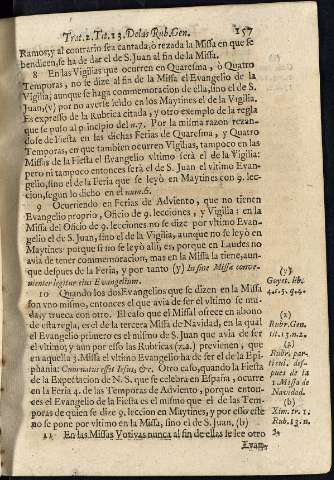 Trat. 2. Tit. 13. De las Rub. Gen. 157
Ramos, y al contrario sea cantada, ò rezada la Missa en que se
bendicen, se ha de dar el de S. Juan al fin de la Missa.
8 En las Vigilias que ocurren en Quaresma, ò Quatro
Temporas, no se dize al fin de la Missa el Evangelio de la
Vigilia, aunque se haga commemoracion de ella, sino el de S.
Juan, (y) por no averle leìdo en los Maytines el de la Vigilia.
Es expresso de la Rubrica citada, y otro exemplo de la regla
que se puso al principio del n. 7. Por la misma razon rezan-
dose de Fiesta en las dichas Ferias de Quaresma, y Quatro
Temporas, en que tambien ocurren Vigilias, tampoco en las
Missas de la Fiesta el Evangelio vltimo serà el de la Vigilia;
pero ni tampoco entonces serà el de S. Juan el vltimo Evan-
gelio, sino el de la Feria que se leyò en Maytines con 9. lec-
cion, segun lo dicho en el num. 6.
9 Ocurriendo en Ferias de Adviento, que no tienen
Evangelio proprio, Oficio de 9. lecciones, y Vigilia: en la
Missa del Oficio de 9. lecciones no se dize por vltimo Evan-
gelio el de S. Juan, sino el de la Vigilia, aunque no se leyò en
Maytines: porque si no se leyò alli, es, porque en Laudes no
avia de tener commemoracion, mas en la Missa la tiene, aun-
que despues de la Feria, y por tanto (y) In fine Missæ conve-
nienter legitur eius Evangelium.
10 Quando los dos Evangelios que se dizen en la Missa
son vno mismo, entonces el que avia de ser el vltimo se mu-
da, y trueca con otro. El caso que el Missal ofrece en abono
de esta regla, es el de la tercera Missa de Navidad, en la qual
el Evangelio primero es el mismo de S. Juan que avia de ser
el vltimo, y aun por esso las Rubricas (z.a) previenen, que
en aquella 3. Missa el vltimo Evangelio ha de ser el de la Epi-
phania: Cum natus esset Iesus, &c. Otro caso, quando la Fiesta
de la Expectacion de N. S. que se celebra en España, ocurre
en la Feria 4. de las Temporas de Adviento, porque enton-
ces el Evangelio de la Fiesta es el mismo que el de las Tem-
poras de quien se dize 9. leccion en Maytines, y por esso este
no se pone por vltimo en la Missa, sino el de S. Juan. (b)
11 En las Missas Votivas nunca al fin de ellas se lee otro
Evan-
(y)
Goyet. lib.
(z)
Rubr. Gen.
tit. 13. n. 2.
(a)
Rubr. par-
ticul. des-
pues de la
3. Missa de
Navidad.
(b)
Xim. tr. 1.
Rub. 13. n.